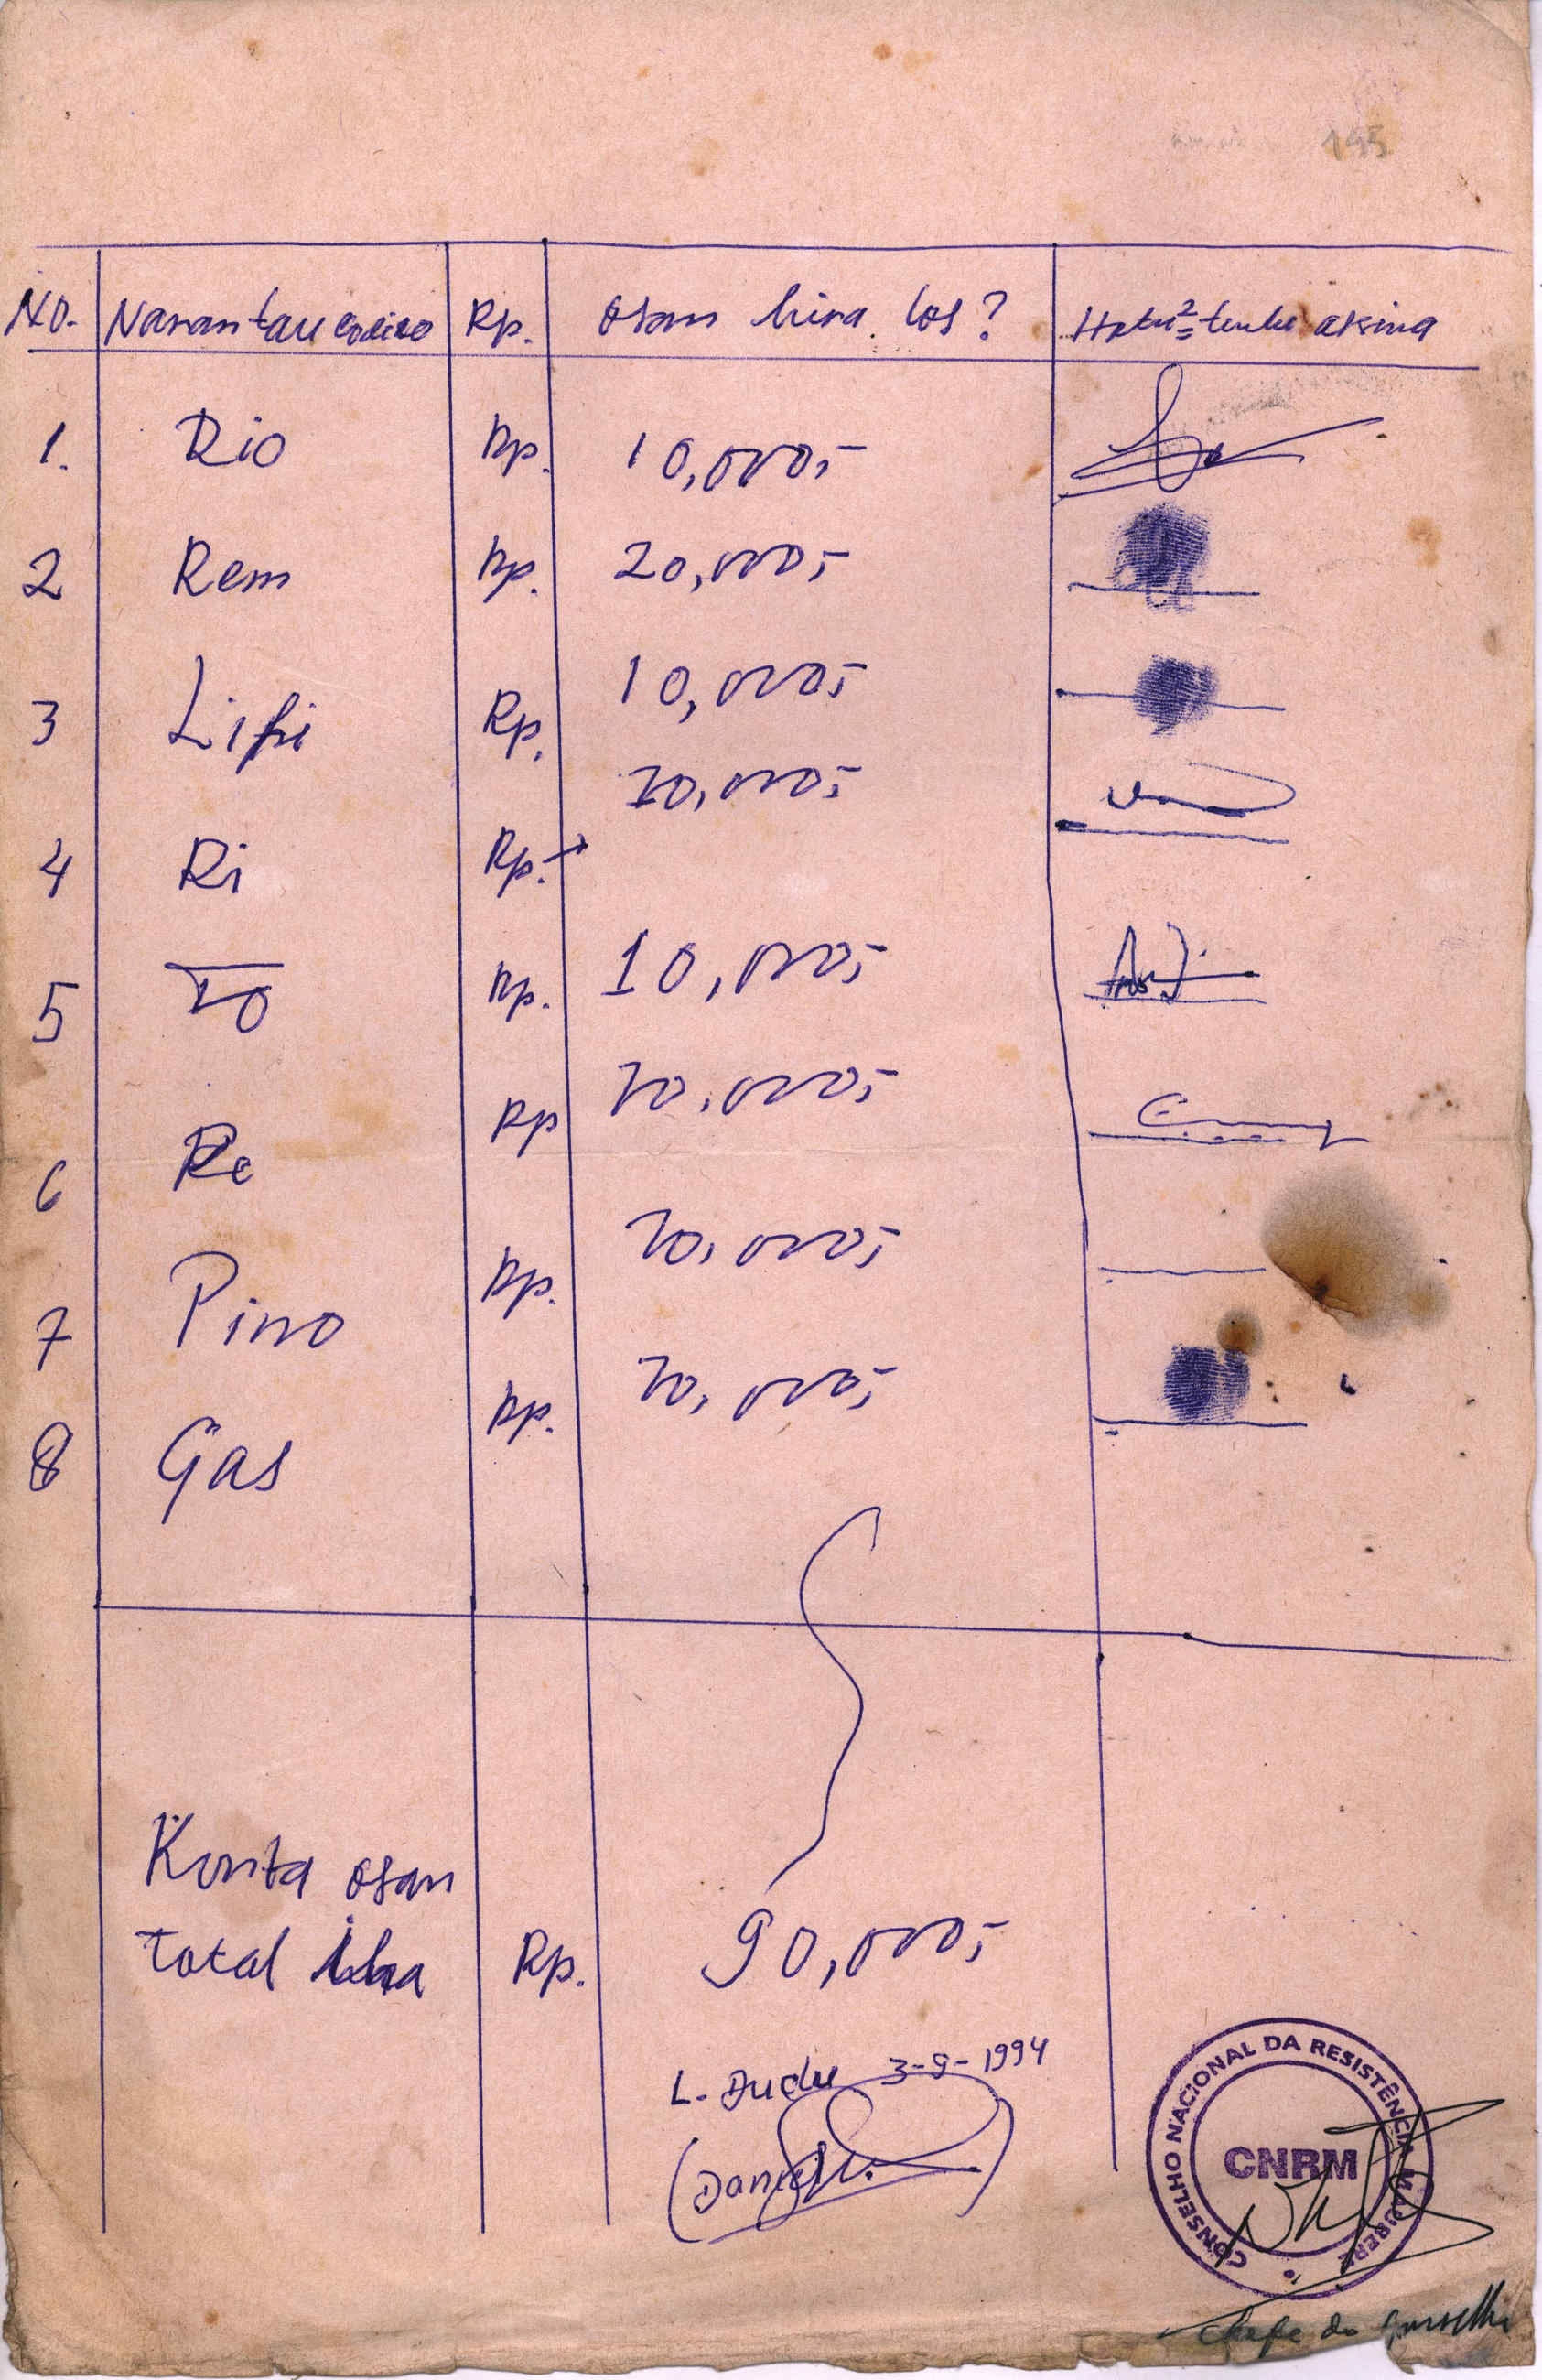 No. Naran tau codico Rp. Osan hira los? asina
1. Rio Rp. 10,000,-
2 Rem Rp. 20,000,-
3 Lifi Rp. 10,000,-
4 Ri Rp. 10,000,-
5 To Rp. 10,000,-
6 Re Rp 10,000,-
7 Pino Rp. 10,000,-
8 Gas Rp. 10,000,-
Konta osan
total Rp. 90,000,-
3-9-1994
CONSELHO NACIONAL DA RESISTÊNCIA MAUBERE
CNRM
Chefe do